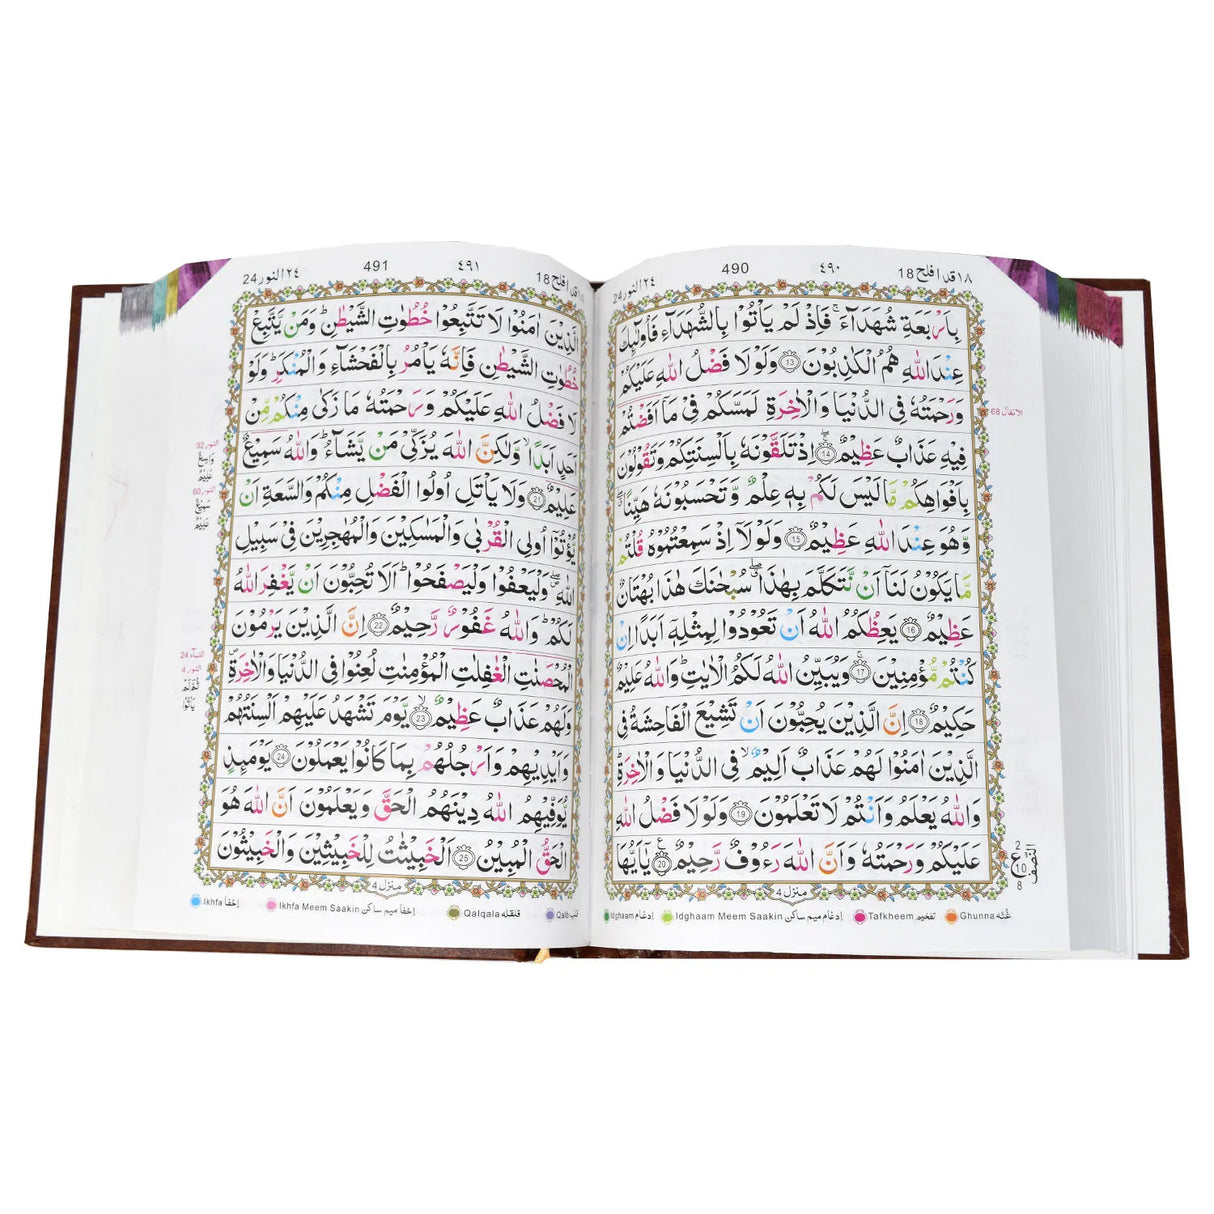 ١٨ قد افلح 18
٤٩٠
490
النور ٢٤
بِاَرْبَعَةِ شُهَدَآءَ ۚ فَاِذْ لَمْ يَاْتُوْا بِالشُّهَدَآءِ فَاُولٰٓئِكَ
عِنْدَ اللّٰهِ هُمُ الْكٰذِبُوْنَ 13 وَلَوْ لَا فَضْلُ اللّٰهِ عَلَيْكُمْ
وَرَحْمَتُهٗ فِى الدُّنْيَا وَالْاٰخِرَةِ لَمَسَّكُمْ فِىْ مَآ اَفَضْتُمْ
فِيْهِ عَذَابٌ عَظِيْمٌ 14 اِذْ تَلَقَّوْنَهٗ بِاَلْسِنَتِكُمْ وَتَقُوْلُوْنَ
بِاَفْوَاهِكُمْ مَّا لَيْسَ لَكُمْ بِهٖ عِلْمٌ وَّتَحْسَبُوْنَهٗ هَيِّنًا ۖ
وَّهُوَ عِنْدَ اللّٰهِ عَظِيْمٌ 15 وَلَوْ لَآ اِذْ سَمِعْتُمُوْهُ قُلْتُمْ
مَّا يَكُوْنُ لَنَآ اَنْ نَّتَكَلَّمَ بِهٰذَا ۖ سُبْحٰنَكَ هٰذَا بُهْتَانٌ
عَظِيْمٌ 16 يَعِظُكُمُ اللّٰهُ اَنْ تَعُوْدُوْا لِمِثْلِهٖٓ اَبَدًا اِنْ
كُنْتُمْ مُّؤْمِنِيْنَ 17 وَيُبَيِّنُ اللّٰهُ لَكُمُ الْاٰيٰتِ ؕ وَاللّٰهُ عَلِيْمٌ
حَكِيْمٌ 18 اِنَّ الَّذِيْنَ يُحِبُّوْنَ اَنْ تَشِيْعَ الْفَاحِشَةُ فِى
الَّذِيْنَ اٰمَنُوْا لَهُمْ عَذَابٌ اَلِيْمٌ ۙ فِى الدُّنْيَا وَالْاٰخِرَةِ ؕ
وَاللّٰهُ يَعْلَمُ وَاَنْتُمْ لَا تَعْلَمُوْنَ 19 وَلَوْ لَا فَضْلُ اللّٰهِ
عَلَيْكُمْ وَرَحْمَتُهٗ وَاَنَّ اللّٰهَ رَءُوْفٌ رَّحِيْمٌ 20 يٰٓاَيُّهَا
منزل ٤
الانفال 68
2
ع
10
8
النصف
Idghaam ادغام
Idghaam Meem Saakin ادغام میم ساکن
Tafkheem تفخیم
Ghunna غُنّه
١٨ قد افلح 18
٤٩١
491
النور ٢٤ 24
الَّذِيْنَ اٰمَنُوْا لَا تَتَّبِعُوْا خُطُوٰتِ الشَّيْطٰنِ ؕ وَمَنْ يَّتَّبِعْ
خُطُوٰتِ الشَّيْطٰنِ فَاِنَّهٗ يَاْمُرُ بِالْفَحْشَآءِ وَالْمُنْكَرِ ؕ وَلَوْ
لَا فَضْلُ اللّٰهِ عَلَيْكُمْ وَرَحْمَتُهٗ مَا زَكٰى مِنْكُمْ مِّنْ
اَحَدٍ اَبَدًا ۙ وَّلٰكِنَّ اللّٰهَ يُزَكِّىْ مَنْ يَّشَآءُ ؕ وَاللّٰهُ سَمِيْعٌ
عَلِيْمٌ 21 وَلَا يَاْتَلِ اُولُوا الْفَضْلِ مِنْكُمْ وَالسَّعَةِ اَنْ
يُّؤْتُوْٓا اُولِى الْقُرْبٰى وَالْمَسٰكِيْنَ وَالْمُهٰجِرِيْنَ فِىْ سَبِيْلِ
اللّٰهِ ۖ وَلْيَعْفُوْا وَلْيَصْفَحُوْا ؕ اَلَا تُحِبُّوْنَ اَنْ يَّغْفِرَ اللّٰهُ
لَكُمْ ؕ وَاللّٰهُ غَفُوْرٌ رَّحِيْمٌ 22 اِنَّ الَّذِيْنَ يَرْمُوْنَ
الْمُحْصَنٰتِ الْغٰفِلٰتِ الْمُؤْمِنٰتِ لُعِنُوْا فِى الدُّنْيَا وَالْاٰخِرَةِ ۪
وَلَهُمْ عَذَابٌ عَظِيْمٌ 23 يَّوْمَ تَشْهَدُ عَلَيْهِمْ اَلْسِنَتُهُمْ
وَاَيْدِيْهِمْ وَاَرْجُلُهُمْ بِمَا كَانُوْا يَعْمَلُوْنَ 24 يَوْمَئِذٍ
يُّوَفِّيْهِمُ اللّٰهُ دِيْنَهُمُ الْحَقَّ وَيَعْلَمُوْنَ اَنَّ اللّٰهَ هُوَ
الْحَقُّ الْمُبِيْنُ 25 اَلْخَبِيْثٰتُ لِلْخَبِيْثِيْنَ وَالْخَبِيْثُوْنَ
منزل ٤
النور 32
وَاسِعٌ
عَلِيْمٌ
النور 60
سَمِيْعٌ
عَلِيْمٌ
النساء 24
النور 4
ثُمَّ لَمْ
يَاْتُوْا
Ikhfa اخفا
Ikhfa Meem Saakin اخفا میم ساکن
Qalqala قلقله
Qalb قلب